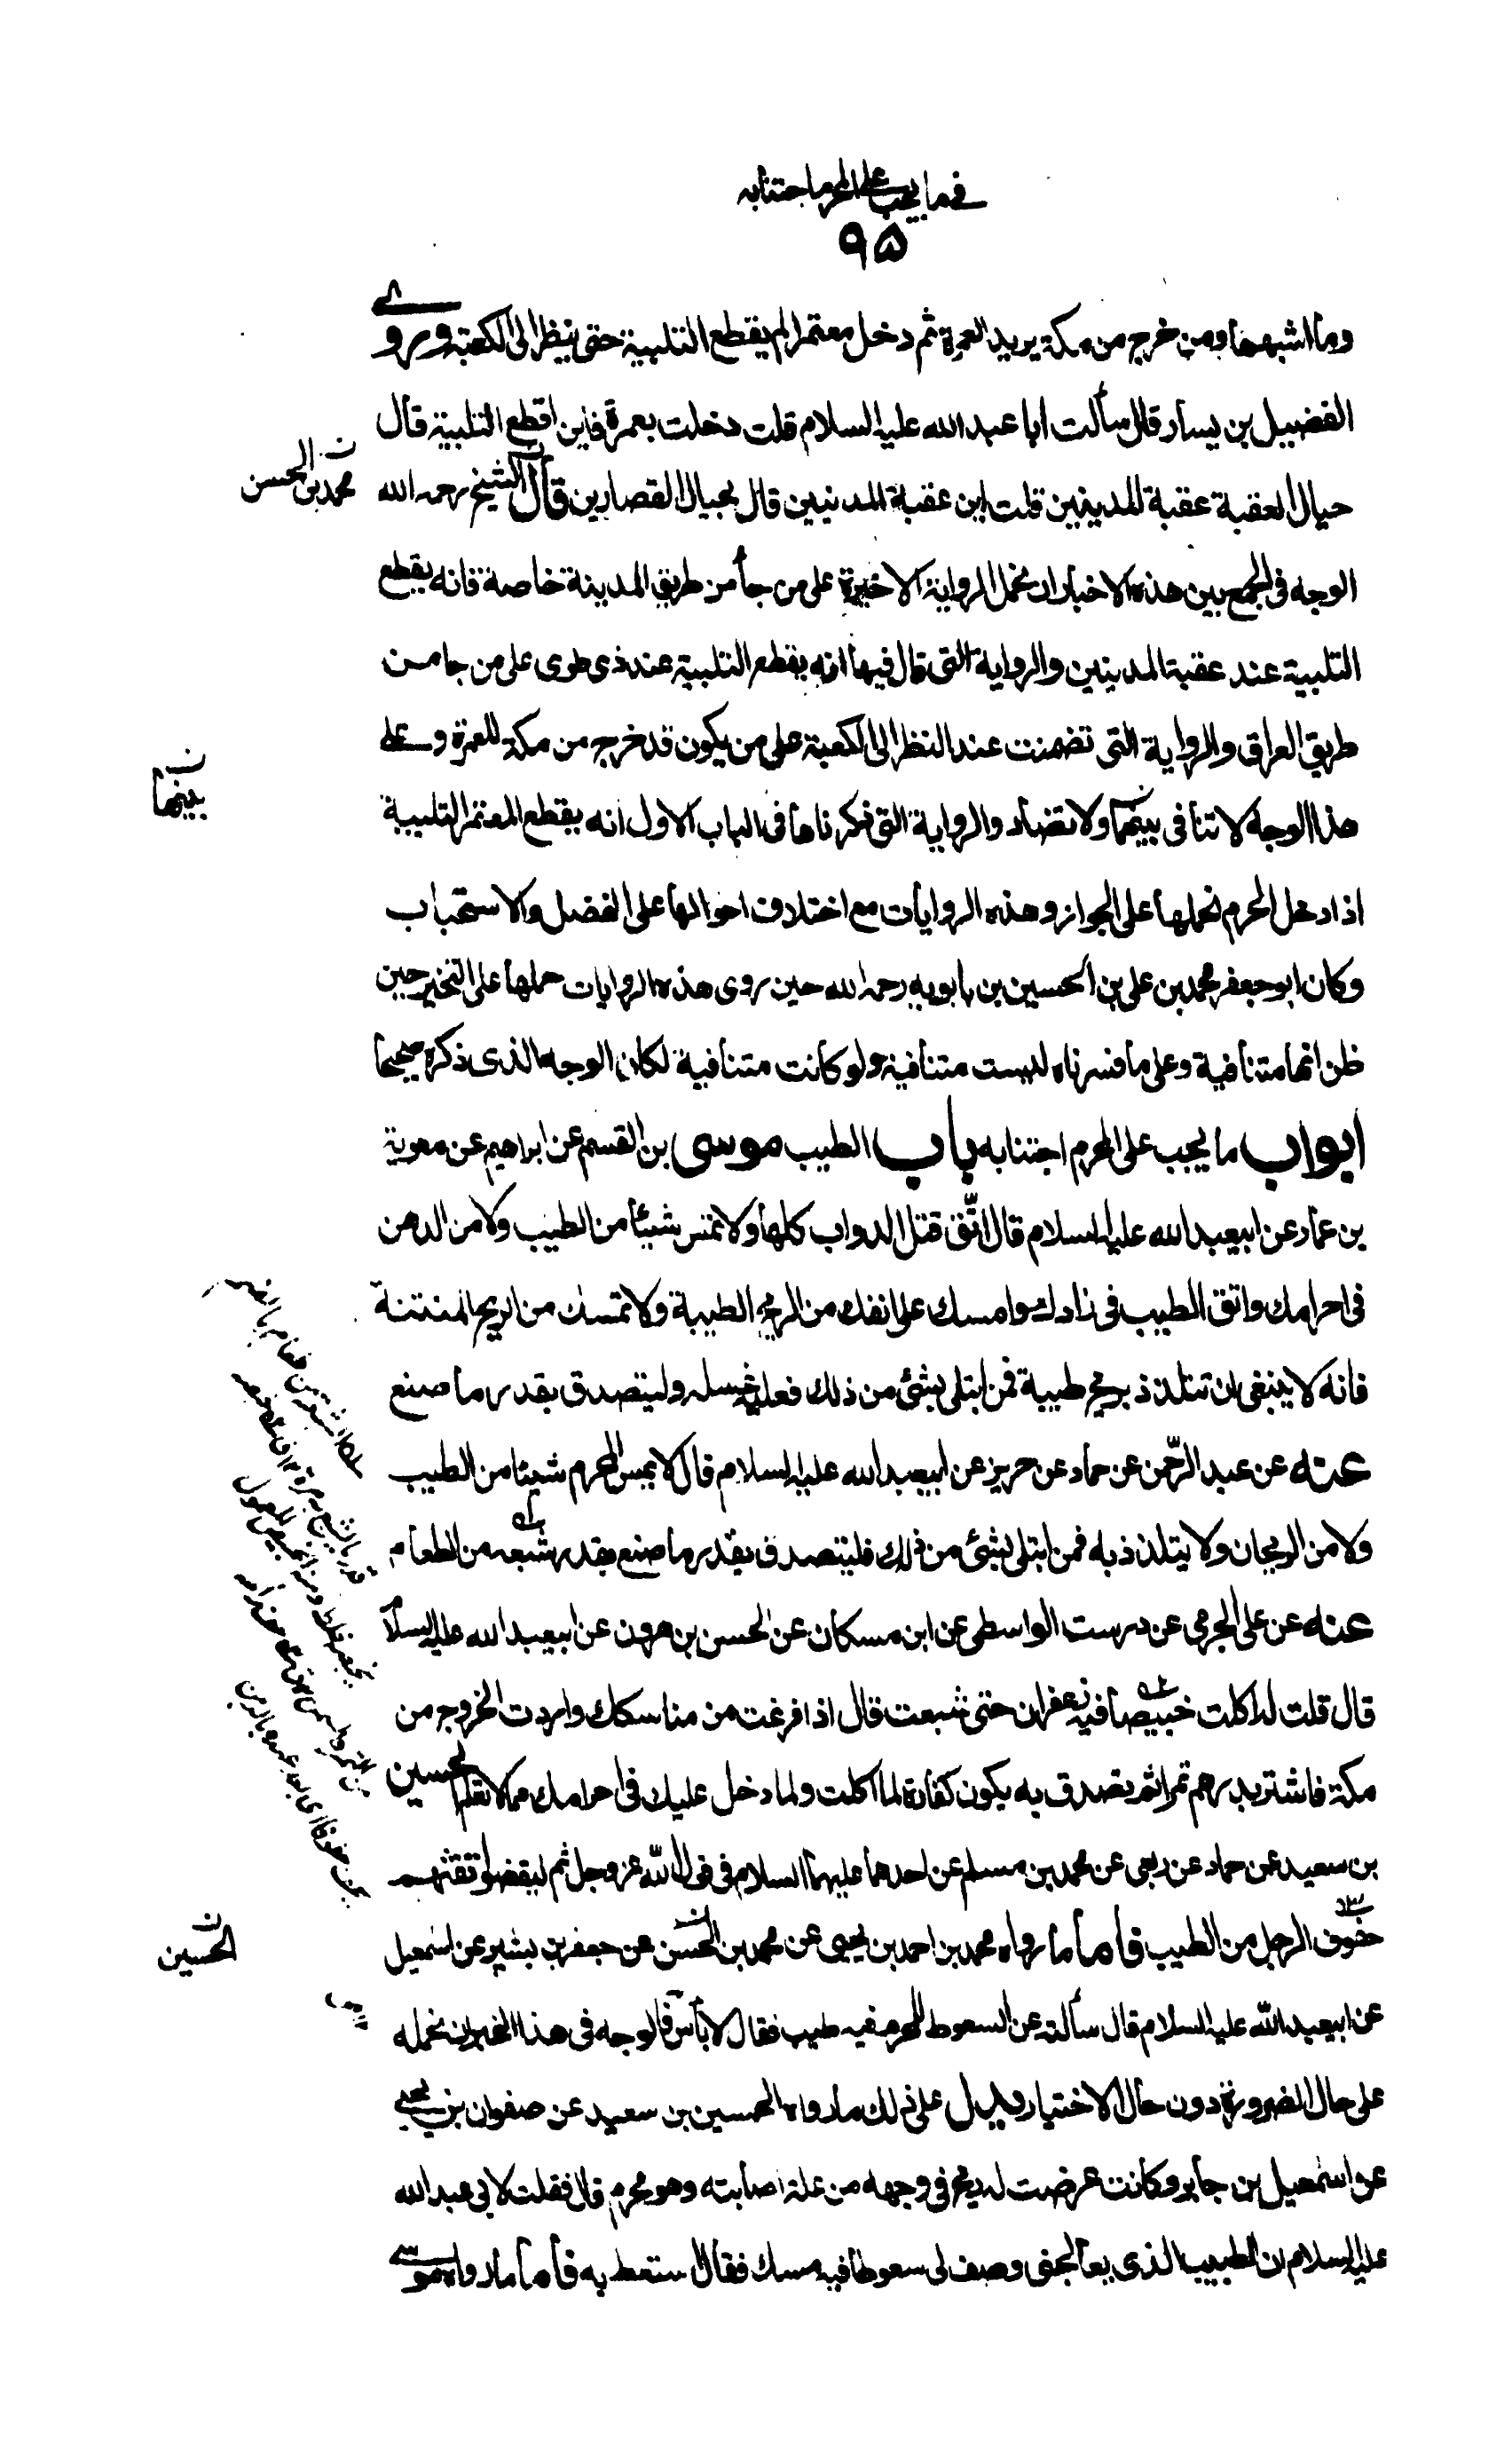 في ما يجب على المحرم اجتنابه
٩٥
وما اشبهها ومن خرج من مكة يريد العمرة ثم دخل معتمرا لم يقطع التلبية حتى ينظر الى الكعبة وروى
الفضيل بن يسار قال سألت ابا عبد الله عليه السلام قلت دخلت بعمرة فاين اقطع التلبية قال
حيال العقبة عقبة المدينين قلت اين عقبة المدينين قال بحيال القصارين قال الشيخ رحمه الله
ن محمد بن الحسن
الوجه فى الجمع بين هذه الاخبار ان نحمل الرواية الاخيرة على من جاء من طريق المدينة خاصة فانه يقطع
التلبية عند عقبة المدينين والرواية التى قال فيها انه يقطع التلبية عند ذى طوى على من جا من
طريق العراق والرواية التى تضمنت عند النظر الى الكعبة على من يكون قد خرج من مكة للعمرة وعلى
هذا الوجه لا تنافى بينهما ولا تضاد والرواية التى ذكرناها فى الباب الاول انه يقطع المعتمر التلبية
ن بينها
اذا دخل الحرم نحملها على الجواز وهذه الروايات مع اختلاف احوالها على الفضل والاستحباب
وكان ابو جعفر محمد بن على بن الحسين بن بابويه رحمه الله حين روى هذه الروايات حملها على التخيير حين
ظن انها متنافية وعلى ما فسرناه ليست متنافية ولو كانت متنافية لكان الوجه الذى ذكره صحيحا
ابواب ما يجب على المحرم اجتنابه باب الطيب موسى بن القسم عن ابراهيم عن معوية
بن عمار عن ابيعبد الله عليه السلام قال اتّق قتل الدواب كلها ولا تمس شيئا من الطيب ولا من الدهن
فى احرامك واتق الطيب فى زادك وامسك على انفك من الريح الطيبة ولا تمسك من الريح المنتنة
فانه لا ينبغى ان تتلذذ بريح طيبة فمن ابتلى بشئ من ذلك فعليه غسله وليتصدق بقدر ما صنع
عنه عن عبد الرّحمن عن حماد عن حريز عن ابيعبد الله عليه السلام قال لا يمس المحرم شيئا من الطيب
ولا من الريحان ولا يتلذذ به فمن ابتلى بشئ من ذلك فليتصدق بقدر ما صنع بقدر شبعه من الطعام
عنه عن على الجرمى عن درست الواسطى عن ابن مسكان عن الحسن بن هرون عن ابيعبد الله عليه السلام
قال قلت له اكلت خبيصا فيه زعفران حتى شبعت قال اذا فرغت من مناسكك واردت الخروج من
مكة فاشتر بدرهم تمرا ثم تصدق به يكون كفارة لما اكلت ولما دخل عليك فى احرامك مما لا تعلم الحسين
بن سعيد عن حماد عن ربعى عن محمد بن مسلم عن احدهما عليهما السلام فى قول اللّه عز وجل ثم ليقضوا تفثهم
حفوف الرجل من الطيب فأما ما رواه محمد بن احمد بن يحيى عن محمد بن الحسن عن جعفر بن بشير عن اسمعيل
ن الحسين
عن ابيعبد اللّه عليه السلام قال سألته عن السعوط للمحرم فيه طيب فقال لا بأس فالوجه فى هذا الخبر ان نحمله
على حال الضرورة دون حال الاختيار ويدل على ذلك ما رواه الحسين بن سعيد عن صفوان بن يحيى
عن اسمعيل بن جابر وكانت عرضت له ريح فى وجهه من علة اصابته وهو محرم قال فقلت لابى عبد الله
عليه السلام ان الطبيب الذى يعالجنى وصف لى سعوطا فيه مسك فقال ستعط به فأما ما رواه موسى